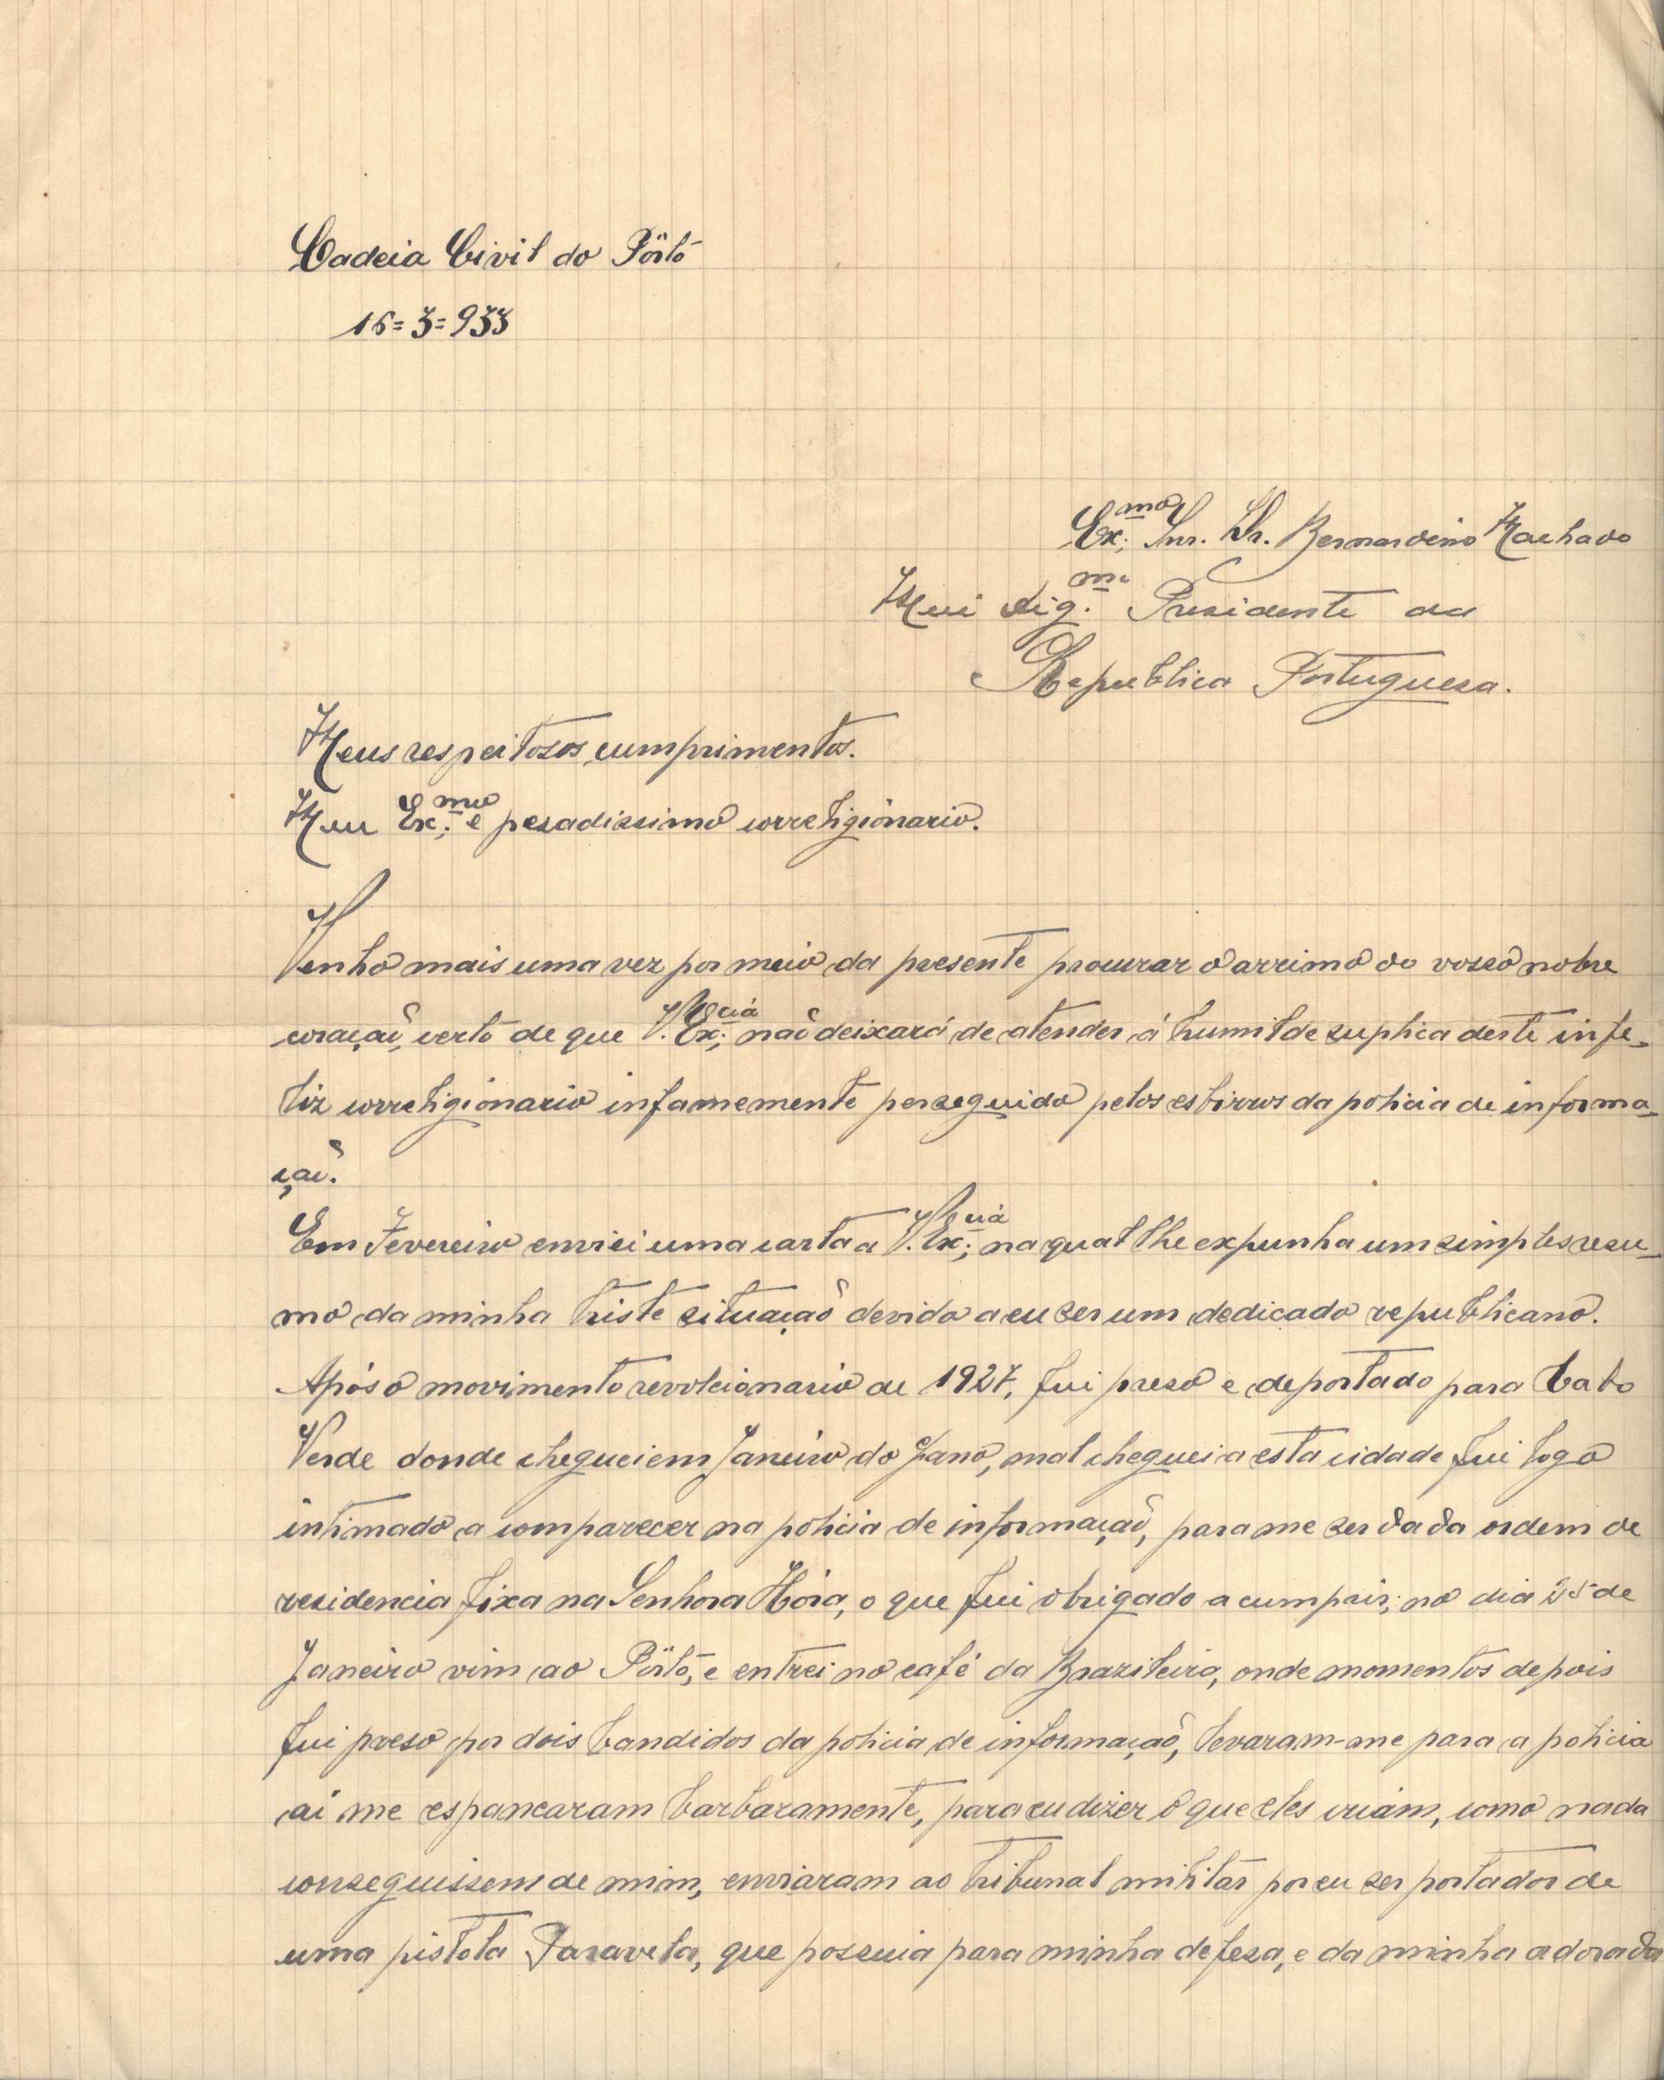 Cadeia Civil do Pôrto
16=3=933
Ex.mo Snr. Dr. Bernardino Machado
Mui dig.mo Presidente da
Republica Portuguesa.
Meus respeitosos cumprimentos.
Meu Ex.mo e pesadissimo correligionario.
Venho mais uma vez por meio da presente procurar o arrimo do vosso nobre
coração, certo de que V. Ex.cia não deixará de atender á humilde suplica deste infe-
liz correligionario infamemente perseguido pelos esbirros da policia de informa-
ção.
Em Fevereiro enviei uma carta a V. Ex.cia na qual lhe expunha um simples resu-
mo da minha triste situação devido a eu ser um dedicado republicano.
Após o movimento revolcionario de 1927, fui preso e deportado para Cabo
Verde donde cheguei em Janeiro do ano, mal cheguei a esta cidade fui logo
intimado a comparecer na policia de informação, para me ser dada ordem de
residencia fixa na Senhora Hóra, o que fui obrigado a cumprir; no dia 25 de
Janeiro vim ao Pôrto, e entrei no café da Brazileira, onde momentos depois
fui preso por dois bandidos da policia de informação, levaram-me para a policia
aí me espancaram barbaramente, para eu dizer o que eles criam, como nada
conseguissem de mim, enviaram ao tribunal militar por eu ser portador de
uma pistola Paravela, que possuia para minha defesa, e da minha adorada